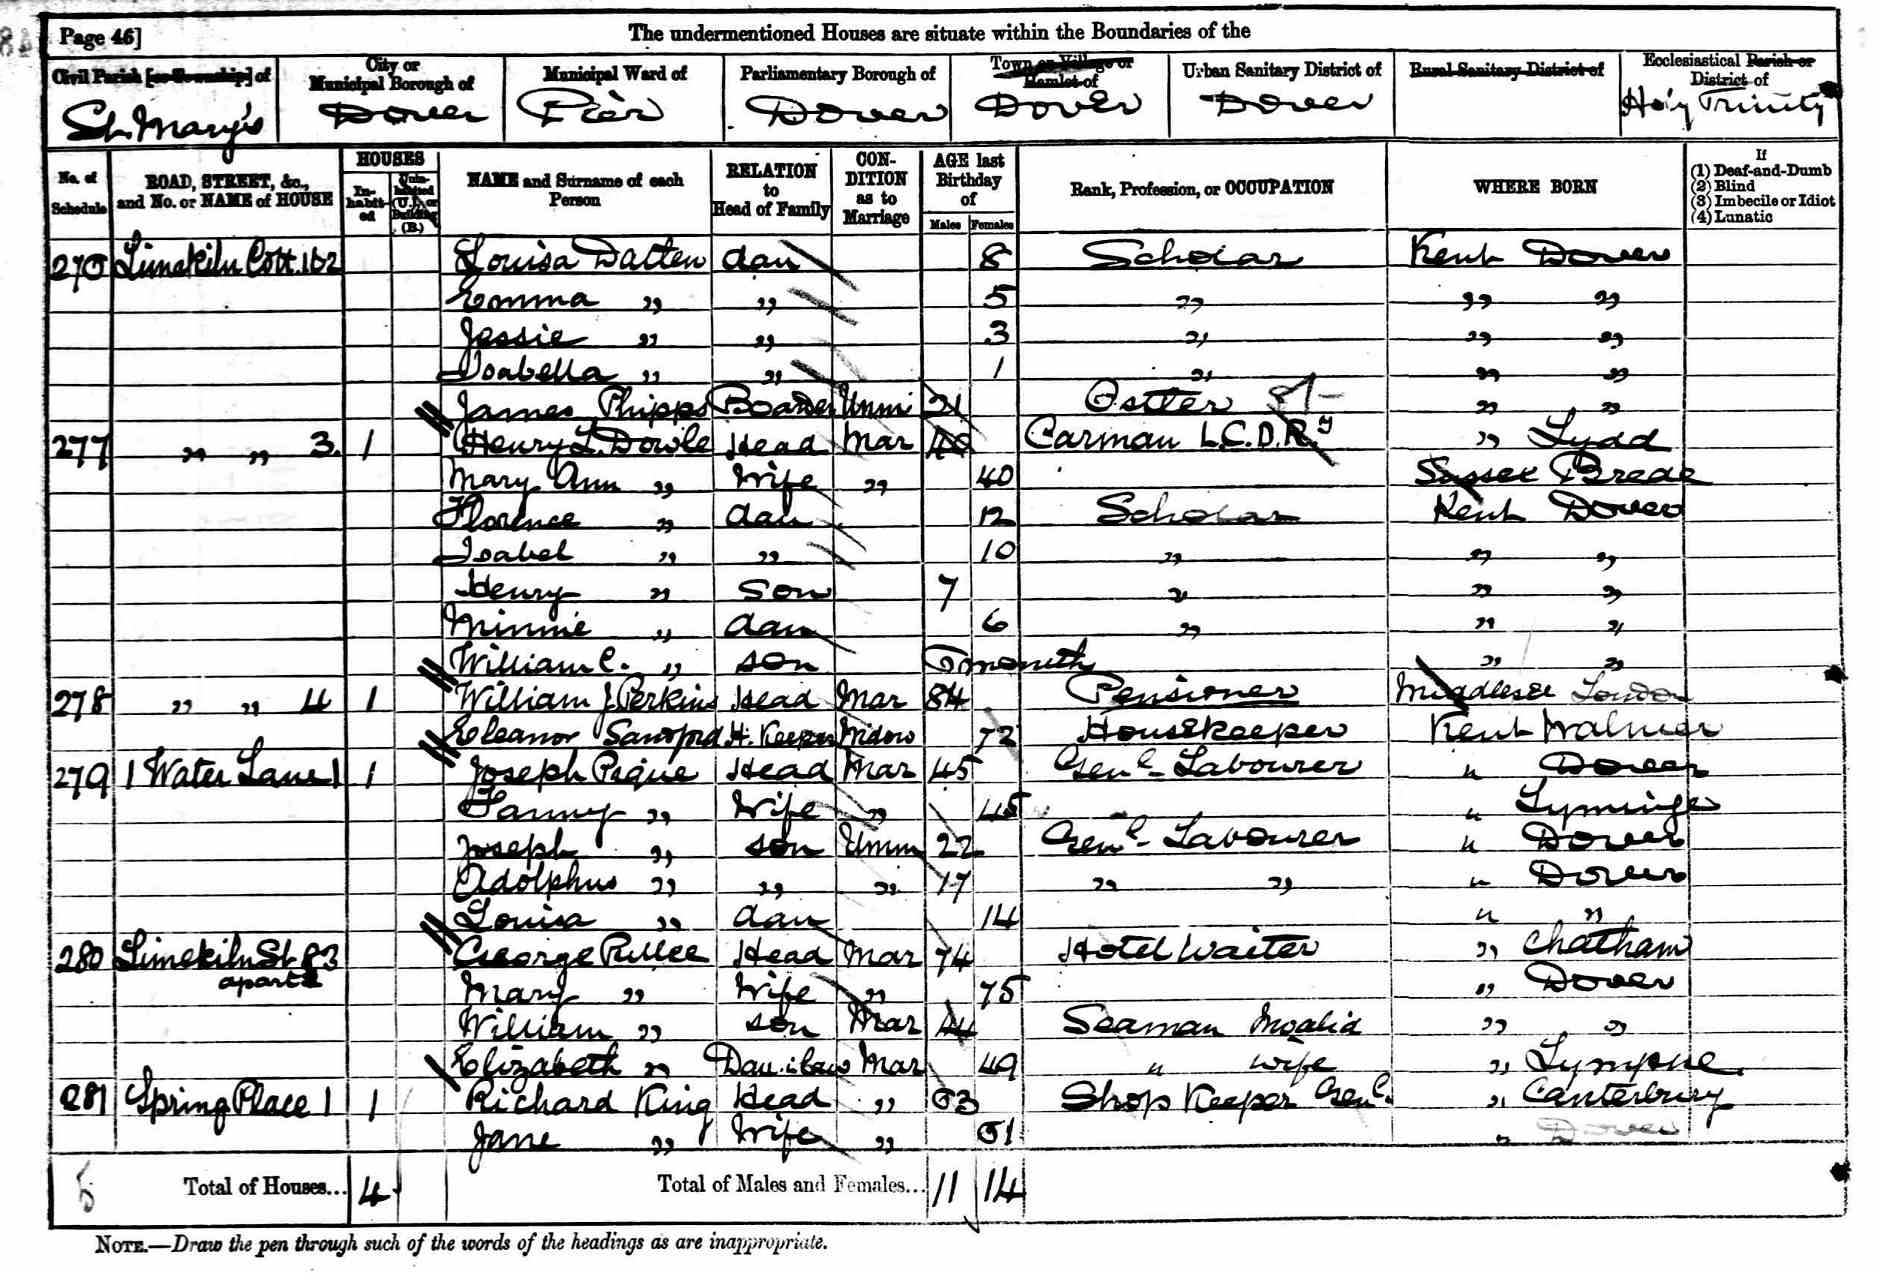 Page 46]
The undermentioned Houses are situate within the Boundaries of the
Civil Parish [or Township] of
City or Municipal Borough of
Municipal Ward of
Parliamentary Borough of
Town or Village or Hamlet of
Urban Sanitary District of
Rural Sanitary District of
Ecclesiastical Parish or District of
St. Mary's Dover Pier Dover Dover Dover Holy Trinity
No. of Schedule
ROAD, STREET, &c., and No. or NAME of HOUSE
HOUSES
In-habit-ed
Unin-habited (U.), or Building (B.)
NAME and Surname of each Person
RELATION to Head of Family
CON-DITION as to Marriage
AGE last Birthday of
Males Females
Rank, Profession, or OCCUPATION
WHERE BORN
If
(1) Deaf-and-Dumb
(2) Blind
(3) Imbecile or Idiot
(4) Lunatic
270 Limekiln Cott. 1&2 Louisa Datten dau 8 Scholar Kent Dover
Emma " " 5 " " "
Jessie " " 3 " " "
Isabella " " 1 " " "
James Phipps Boarder Unm 21 Ostler " "
277 " " 3. 1 Henry L. Dowle Head Mar 40 Carman L.C.D.Ry " Lydd
Mary Ann " Wife " 40 Sussex Brede
Florence " dau 12 Scholar Kent Dover
Isabel " " 10 " " "
Henry " Son 7 " " "
Minnie " dau 6 " " "
William C. " son " "
278 " " 4 1 William J Perkins Head Mar 84 Pensioner Middlesex London
Eleanor Sanford H. Keeper Widow 72 Housekeeper Kent Walmer
279 1 Water Lane 1 1 Joseph Pique Head Mar 45 Genl Labourer " Dover
Fanny " Wife " 45 " Lyminge
Joseph " son Unm 22 Genl Labourer " Dover
Adolphus " " " 17 " " " Dover
Louisa " dau 14 " "
280 Limekiln St 83 George Pullee Head Mar 74 Hotel Waiter " Chatham
apart
Mary " Wife " 75 " Dover
William " son Mar 44 Seaman Invalid " "
Elizabeth " Dau.i.law Mar 49 " wife " Lympne
281 Spring Place 1 1 Richard King Head " 63 Shop Keeper Genl. " Canterbury
Jane " Wife " 61 " Dover
5 Total of Houses... 4 Total of Males and Females... 11 14
NOTE.—Draw the pen through such of the words of the headings as are inappropriate.